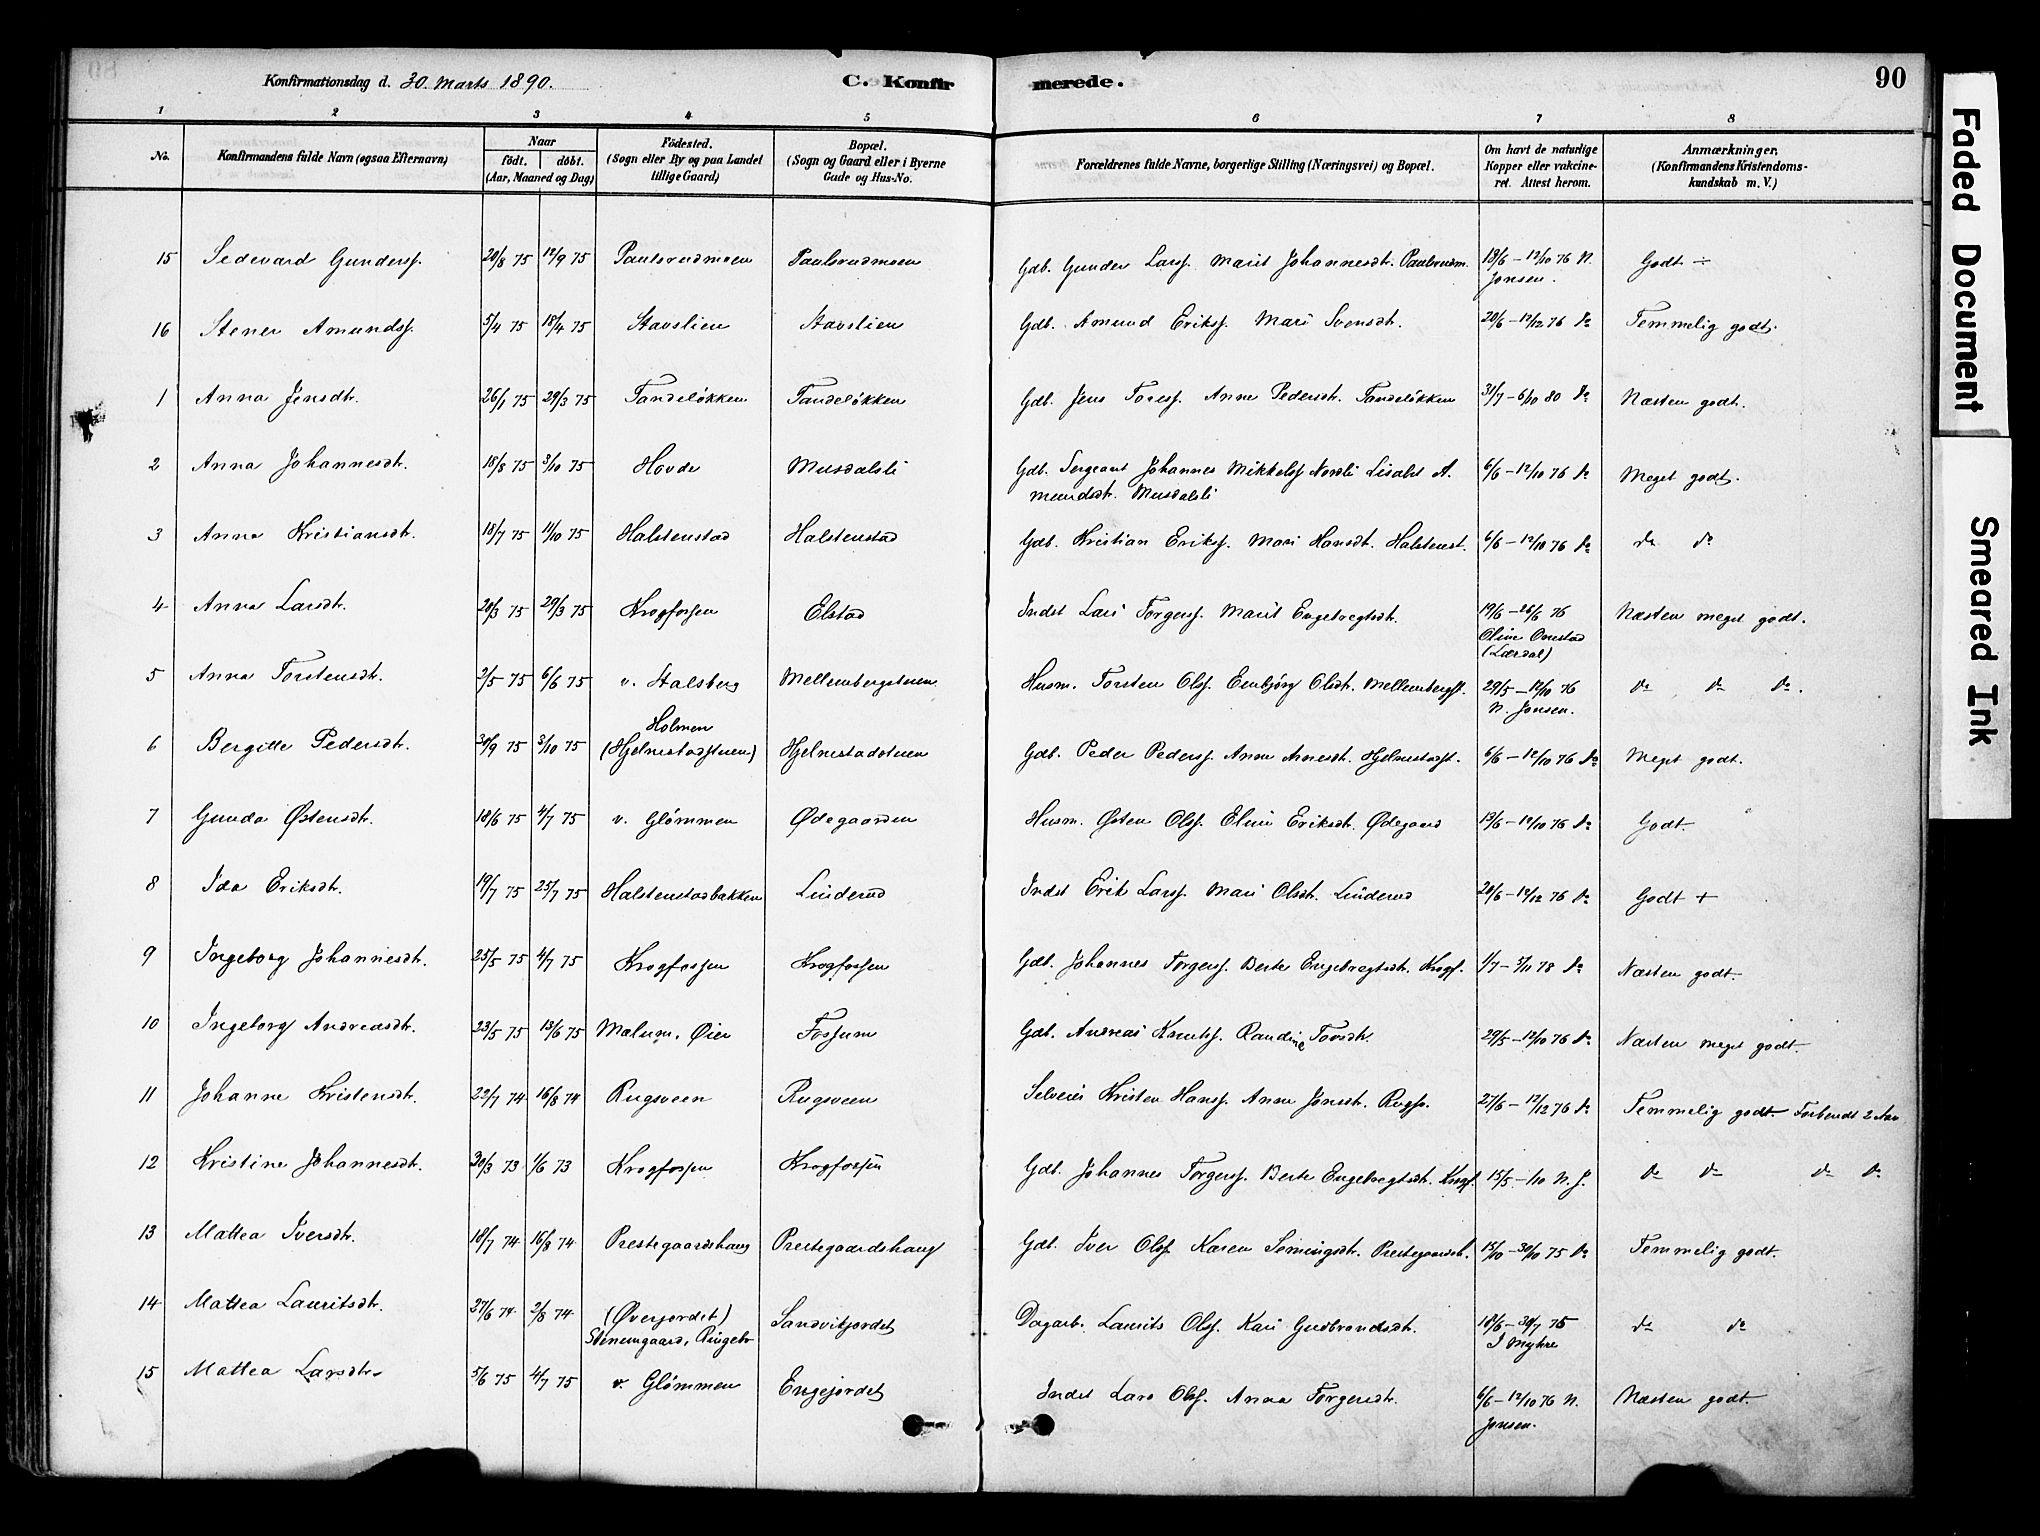 Konfirmationsdag d. 30. Marts 1890.
C. Konfirmerede.
90
1 2 3 4 5 6 7 8
No.
Konfirmandens fulde Navn (ogsaa Efternavn)
Naar
födt. döbt.
(Aar, Maaned og Dag)
Födested.
(Sogn eller By og paa Landet
tillige Gaard)
Bopæl.
(Sogn og Gaard eller i Byerne
Gade og Hus-No.
Forældrenes fulde Navne, borgerlige Stilling (Næringsvei) og Bopæl.
Om havt de naturlige
Kopper eller vakcine-
ret. Attest herom.
Anmærkninger.
(Konfirmandens Kristendoms-
kundskab m. V.)
15 Sedevard Gunders. 20/8 75 12/9 75 Paulsrudmoen Paulsrudmoen Gdb. Gunder Larss. Marit Johannesdt. Paulsrudm. 18/6 – 12/10 76 N. Godt ÷
Jonsen.
16 Stener Amunds. 5/4 75 18/4 75 Stavslien Stavslien Gdb. Amund Eriks. Mari Svensdt. 20/6 – 12/12 76 do Temmelig godt.
1 Anna Jensdt. 26/1 75 29/3 75 Tandeløkken Tandeløkken Gdb. Jens Toress. Anne Pedersdt. Tandeløkken 31/7 – 6/10 80 do Næsten godt.
2 Anna Johannesdt. 18/8 75 3/10 75 Hovde Musdalsli Gdb. Sergeant Johannes Mikkels. Nordli Lisabet A- 6/6 – 12/10 76 do Meget godt.
mundsdt. Musdalsli
3 Anne Kristiansdt. 18/7 75 11/10 75 Halstenstad Halstenstad Gdb. Kristian Eriks. Mari Hansdt. Halstenst. 6/6 – 12/10 76 do do do
4 Anna Larsdt. 20/3 75 29/3 75 Krogfossen Elstad Indst Lars Torgers. Marit Engebregtsdt. 19/6 – 26/6 76 Næsten meget godt.
Oline Onstad
(Lærdal)
5 Anna Torstensdt. 2/5 75 6/6 75 v. Stalsberg Mellembergstuen Husm. Torsten Ols. Embjørg Olsdt. Mellembergst. 29/5 – 12/10 76 do do do.
N. Jonsen.
6 Bergitte Pedersdt. 30/9 75 3/10 75 Holmen
(Hjelmestadstuen) Hjelmestadstuen Gdb. Peder Peders. Anne Arnesdt. Hjelmestadst. 6/6 – 12/10 76 do Meget godt.
7 Gunda Østensdt. 18/6 75 4/7 75 v. Glømmen Ødegaarden Husm. Østen Ols. Eline Eriksdt. Ødegaard 19/6 – 12/10 76 do Godt.
8 Ida Eriksdt. 19/7 75 25/7 75 Halstenstadbakken Linderud Indst Erik Larss. Mari Olsdt. Linderud 20/6 – 12/12 76 do Godt +
9 Ingeborg Johannesdt. 25/5 75 4/7 75 Krogfossen Krogfossen Gdb. Johannes Torgers. Berte Engebregtsdt. Krogf. 1/7 – 3/11 78 do Næsten godt.
10 Ingeborg Andreasdt. 23/5 75 13/6 75 Mælum, Øier Fossum Gdb. Andreas Knuts. Randine Torsdt. 29/5 – 12/10 76 do Næsten meget godt.
11 Johanne Kristensdt. 22/7 74 16/8 74 Rugsveen Rugsveen Selveier Kristen Hans. Anne Jonsdt. Rugsv. 27/6 – 12/12 76 do Temmelig godt. Forberedt 2 Aar
12 Kristine Johannesdt. 30/3 73 1/6 73 Krogfossen Krogfossen Gdb. Johannes Torgers. Berte Engebregtsdt. Krogf. 15/5 – 1/10 N. J. do do do do
13 Mattea Iversdt. 18/7 74 16/8 74 Prestegaardshaug Prestegaardshaug Gdb. Iver Ols. Karen Semingsdt. Prestegaardsh. 15/10 – 30/10 75 do Temmelig godt.
14 Mattea Lauritsdt. 27/6 74 2/8 74 (Øverjordet) Sandvikjordet Dagarb. Laurits Ols. Kari Gudbrandsdt. 18/6 – 30/7 75 do do
Stenumgaard, Ringebo I Myhre
15 Mattea Larsdt. 5/6 75 4/7 75 v. Glømmen Engejordet Indst Lars Ols. Anna Torgersdt. 6/6 – 12/10 76 N. Næsten godt.
Jonsen.
Faded Document
Smeared Ink